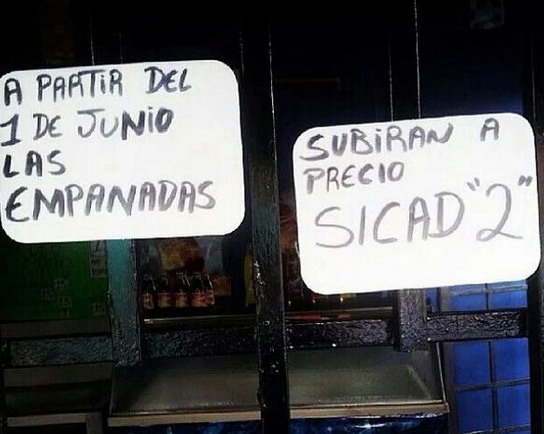 A PARTIR DEL
1 DE JUNIO
LAS
EMPANADAS
SUBIRAN A
PRECIO
SICAD "2"